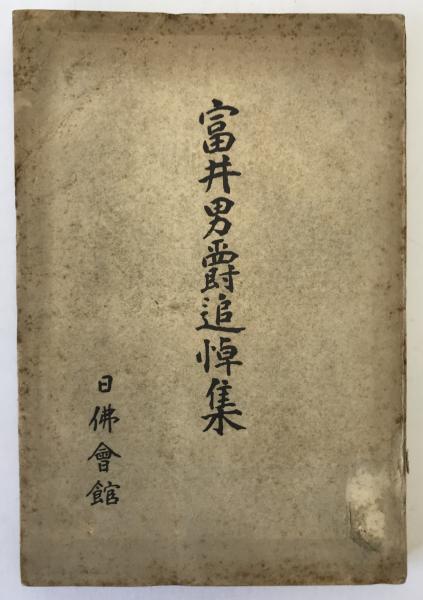 富井男爵追悼集
日佛會館